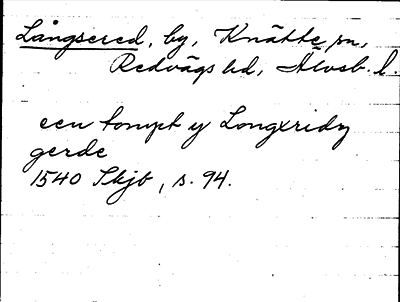 Långsered, by, Knätte sn,
Redvägs hd, Älvsb. l.
een tompt y Longxridz
gerde
1540 Skjb, s. 94.